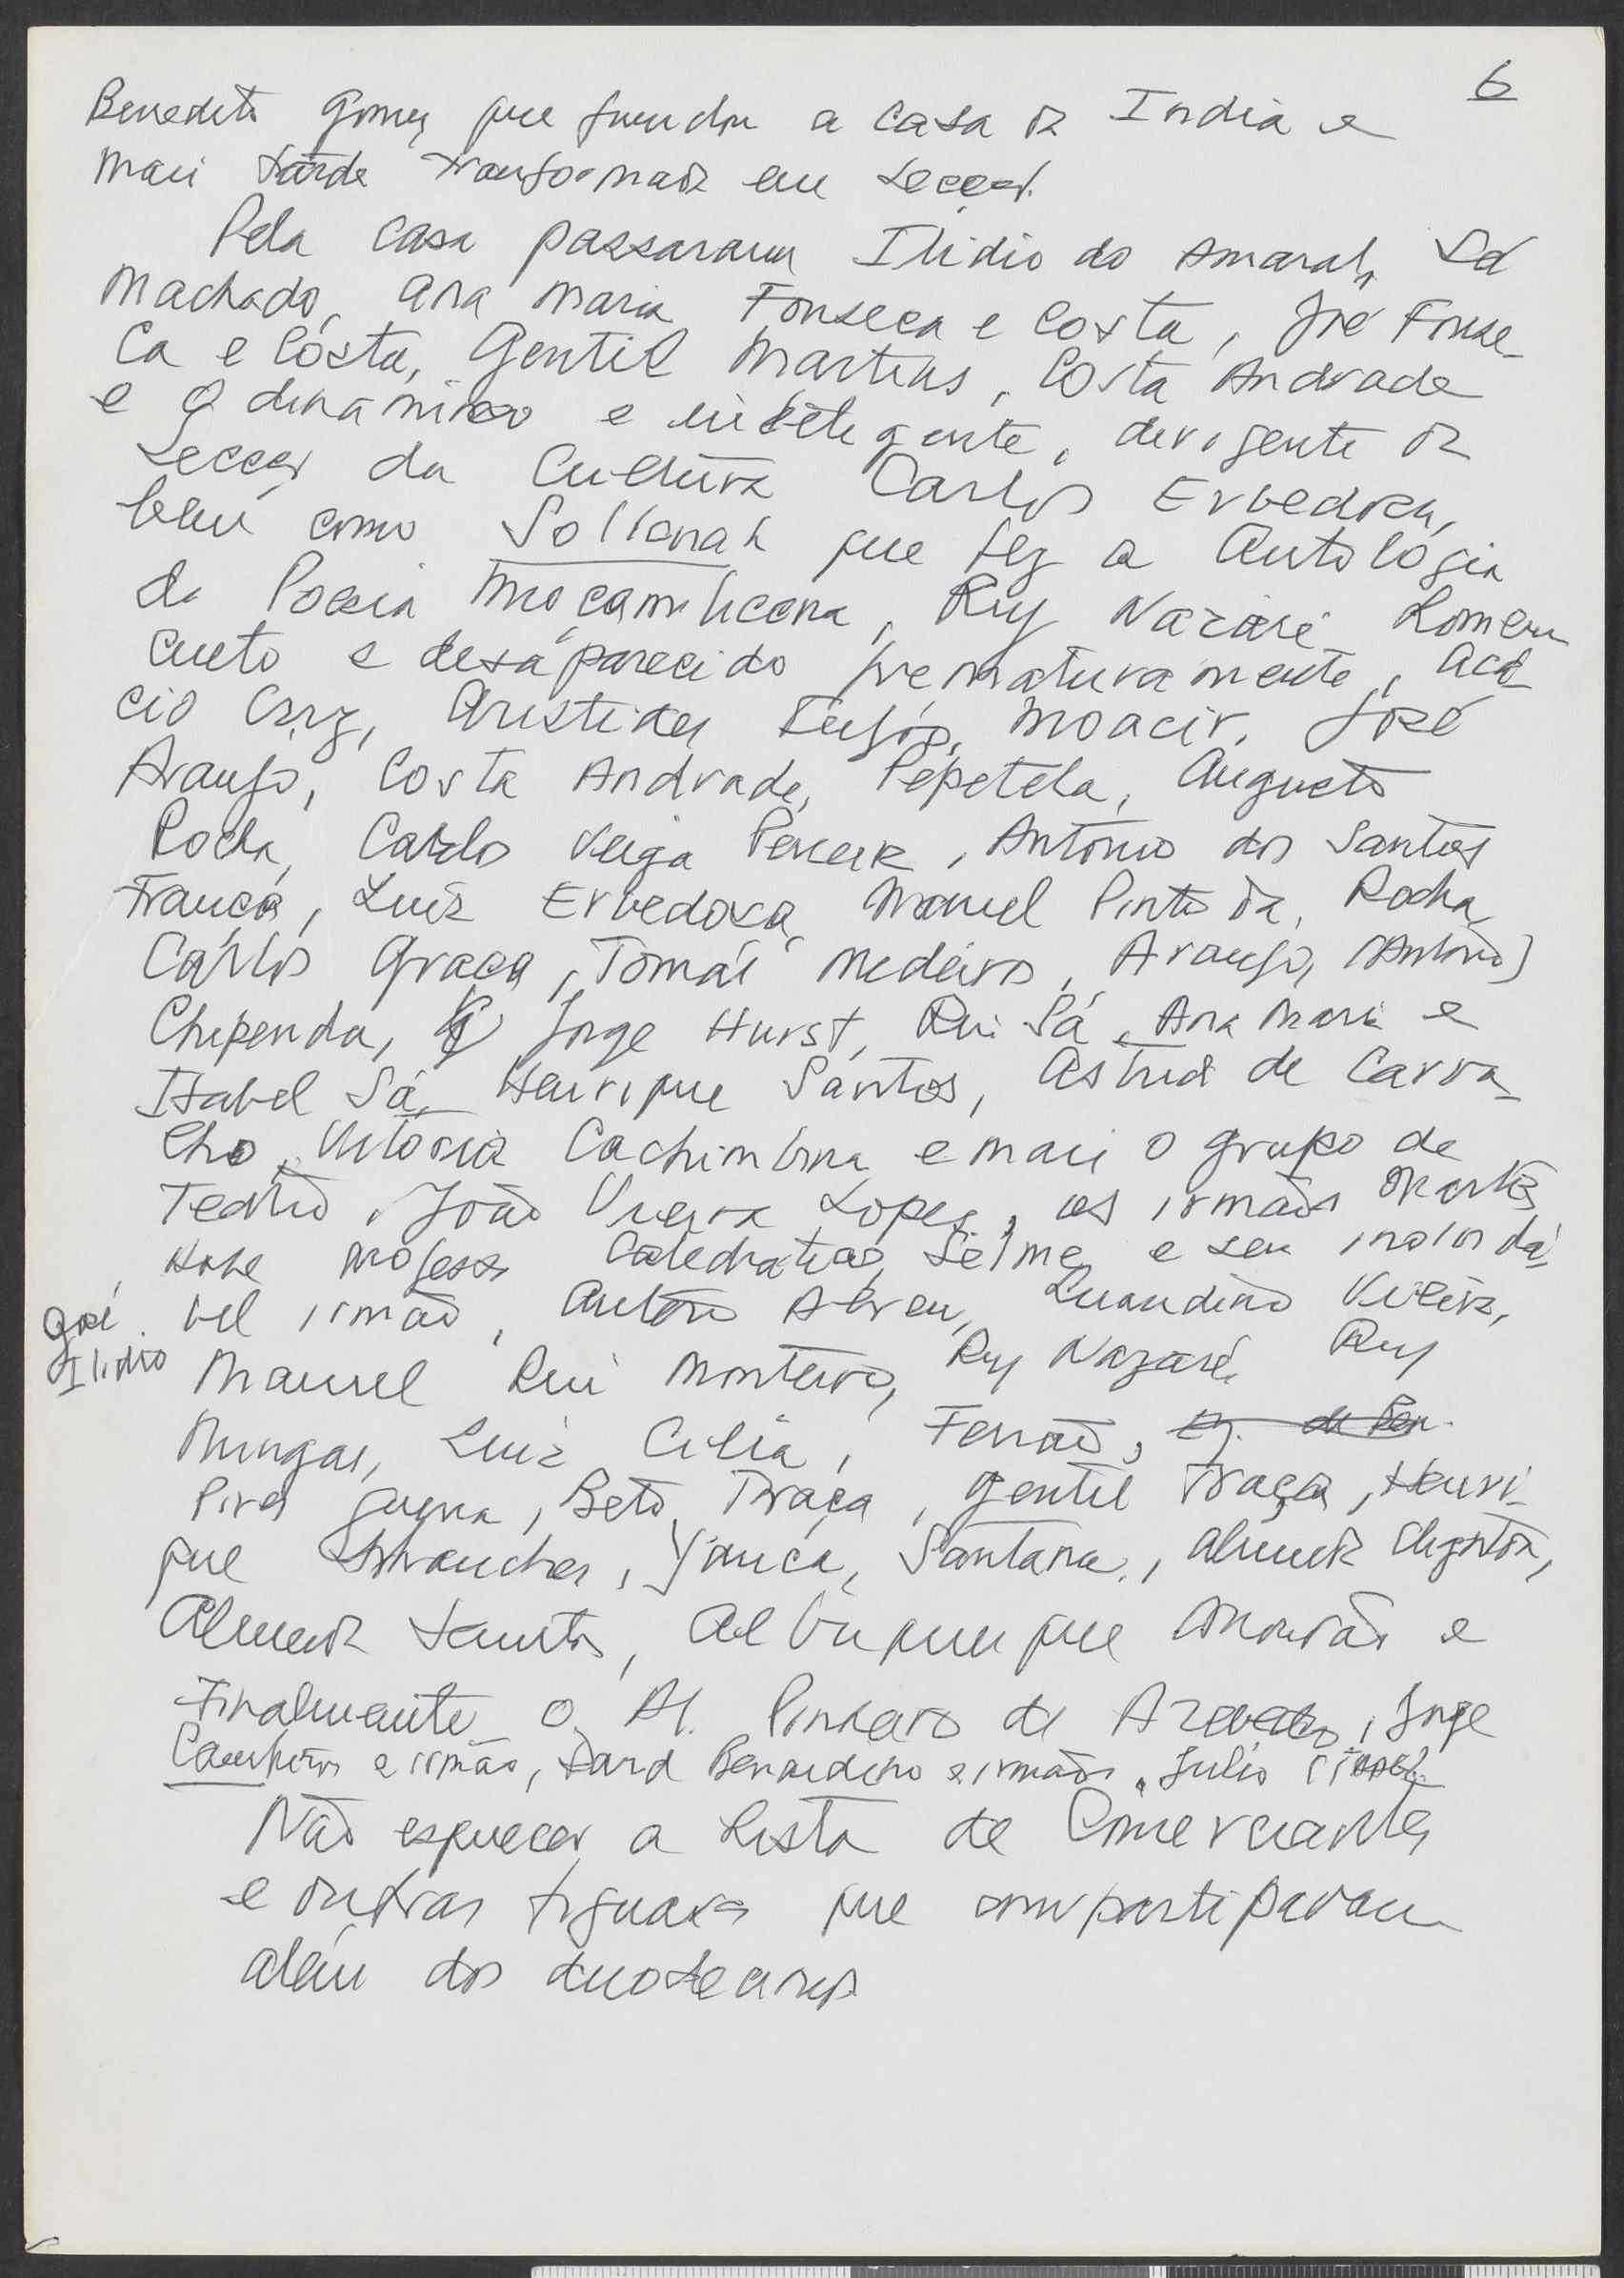 6
Benedito Gomes que fundou a casa da India e
mais tarde transformada em Secção.
Pela casa passaram Ilidio do Amaral, Sá
Machado, Ana Maria Fonseca e Costa, José Fonse-
ca e Costa, Gentil Martins, Costa Andrade
e o dinamico e inteligente, dirigente da
Secção da Cultura Carlos Ervedosa,
bem como Sollanah que fez a Antologia
da Poesia Moçambicana, Ruy Nazaré Romen
cueto e desaparecido prematuramente, Acá-
cio Cruz, Aristides, Moacir, José
Araujo, Costa Andrade, Pepetela, Augusto
Rocha, Carlos Veiga Pereira, António dos Santos
França, Luís Ervedosa, Manuel Pinto da Rocha
Carlos Graça, Tomás Medeiros, Araujo, (António)
Chipenda, Jorge Hurst, Rui Sá, Ana Maria e
Isabel Sá, Henrique Santos, Astrid de Carva-
lho, Vitoria Cachimbina e mais o grupo de
Teatro, João Vieira Lopes, os irmãos Martins
Hoje professor Catedratico, Selme e seu inolvidá-
vel irmão, Antero Abreu, Luandino Vieira,
José Ilidio
Manuel Rui Monteiro, Ruy Nazaré, Ruy
Mingas, Luís Cilia, Ferrão,
Pires Guerra, Beto Traça, Gentil Traça, Henri-
que Abranches, Jouca, Santana, Almeida,
Almeida Santos, Albuquerque Mourão e
Finalmente o Al. Pinheiro de Azevedo, Jorge
Campinos e irmão, Bernardino e irmão, Julio
Não esquecer a lista de Comerciantes
e outras figuras que comparticiparam
além dos